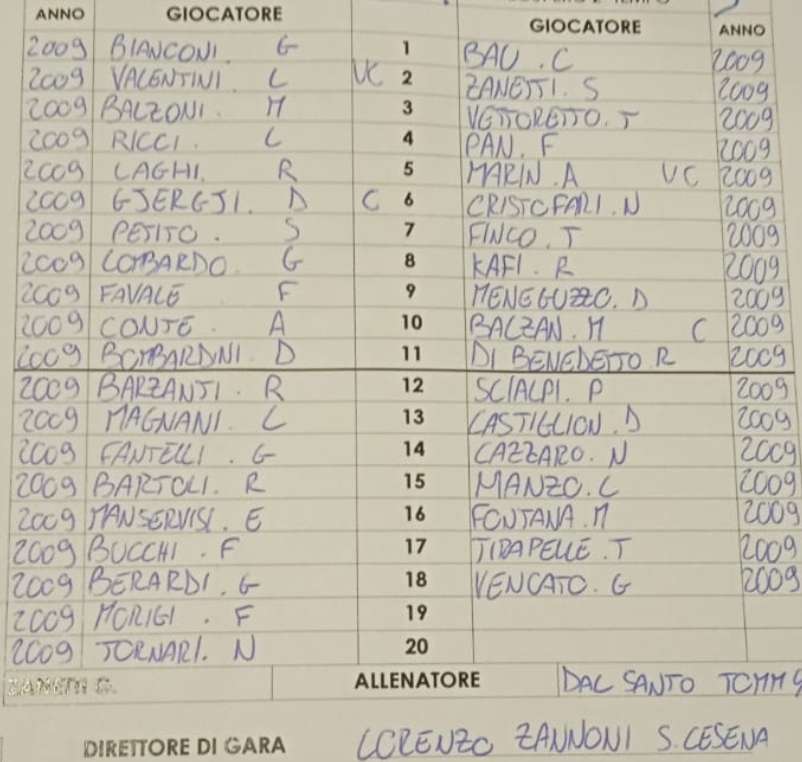 ANNO GIOCATORE GIOCATORE ANNO
2009 BIANCONI. G 1 BAU. C 2009
2009 VALENTINI L VC 2 ZANETTI. S 2009
2009 BALZONI. M 3 VETTORETTO. T 2009
2009 RICCI. L 4 PAN. F 2009
2009 LAGHI. R 5 MARIN. A VC 2009
2009 GJERGJI. D C 6 CRISTOFARI. N 2009
2009 PETITO. S 7 FINCO. T 2009
2009 LOMBARDO. G 8 KAFI. R 2009
2009 FAVALE F 9 MENEGUZZO. D 2009
2009 CONTE. A 10 BALZAN. M C 2009
2009 BOMBARDINI. D 11 DI BENEDETTO R 2009
2009 BARZANTI. R 12 SCIALPI. P 2009
2009 MAGNANI. L 13 CASTIGLION. D 2009
2009 FANTELLI. G 14 CAZZARO. N 2009
2009 BARTOLI. R 15 MANZO. L 2009
2009 MANSERVISI. E 16 FONTANA. M 2009
2009 BUCCHI. F 17 TIRAPELLE. T 2009
2009 BERARDI. G 18 VENCATO. G 2009
2009 MORIGI. F 19
2009 TORNARI. N 20
ALLENATORE DAL SANTO TOMM
DIRETTORE DI GARA LORENZO ZANNONI S. CESENA